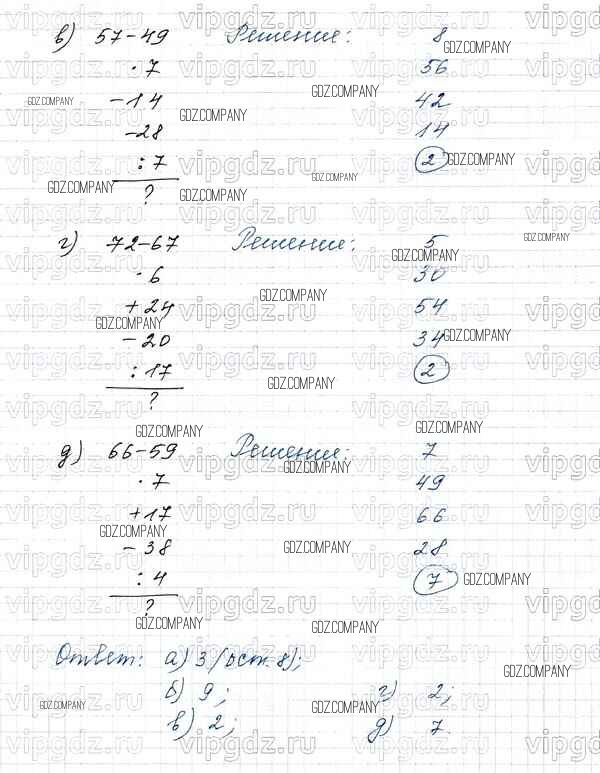 в) 57-49 Решение: 8
· 7 56
-14 42
-28 14
: 7 2
?
г) 72-67 Решение: 5
· 6 30
+ 24 54
- 20 34
: 17 2
?
д) 66-59 Решение: 7
· 7 49
+17 66
- 38 28
: 4 7
?
Ответ: а) 3 (ост. 8);
б) 9; г) 2;
в) 2; д) 7.
vipgdz.ru
GDZ.COMPANY